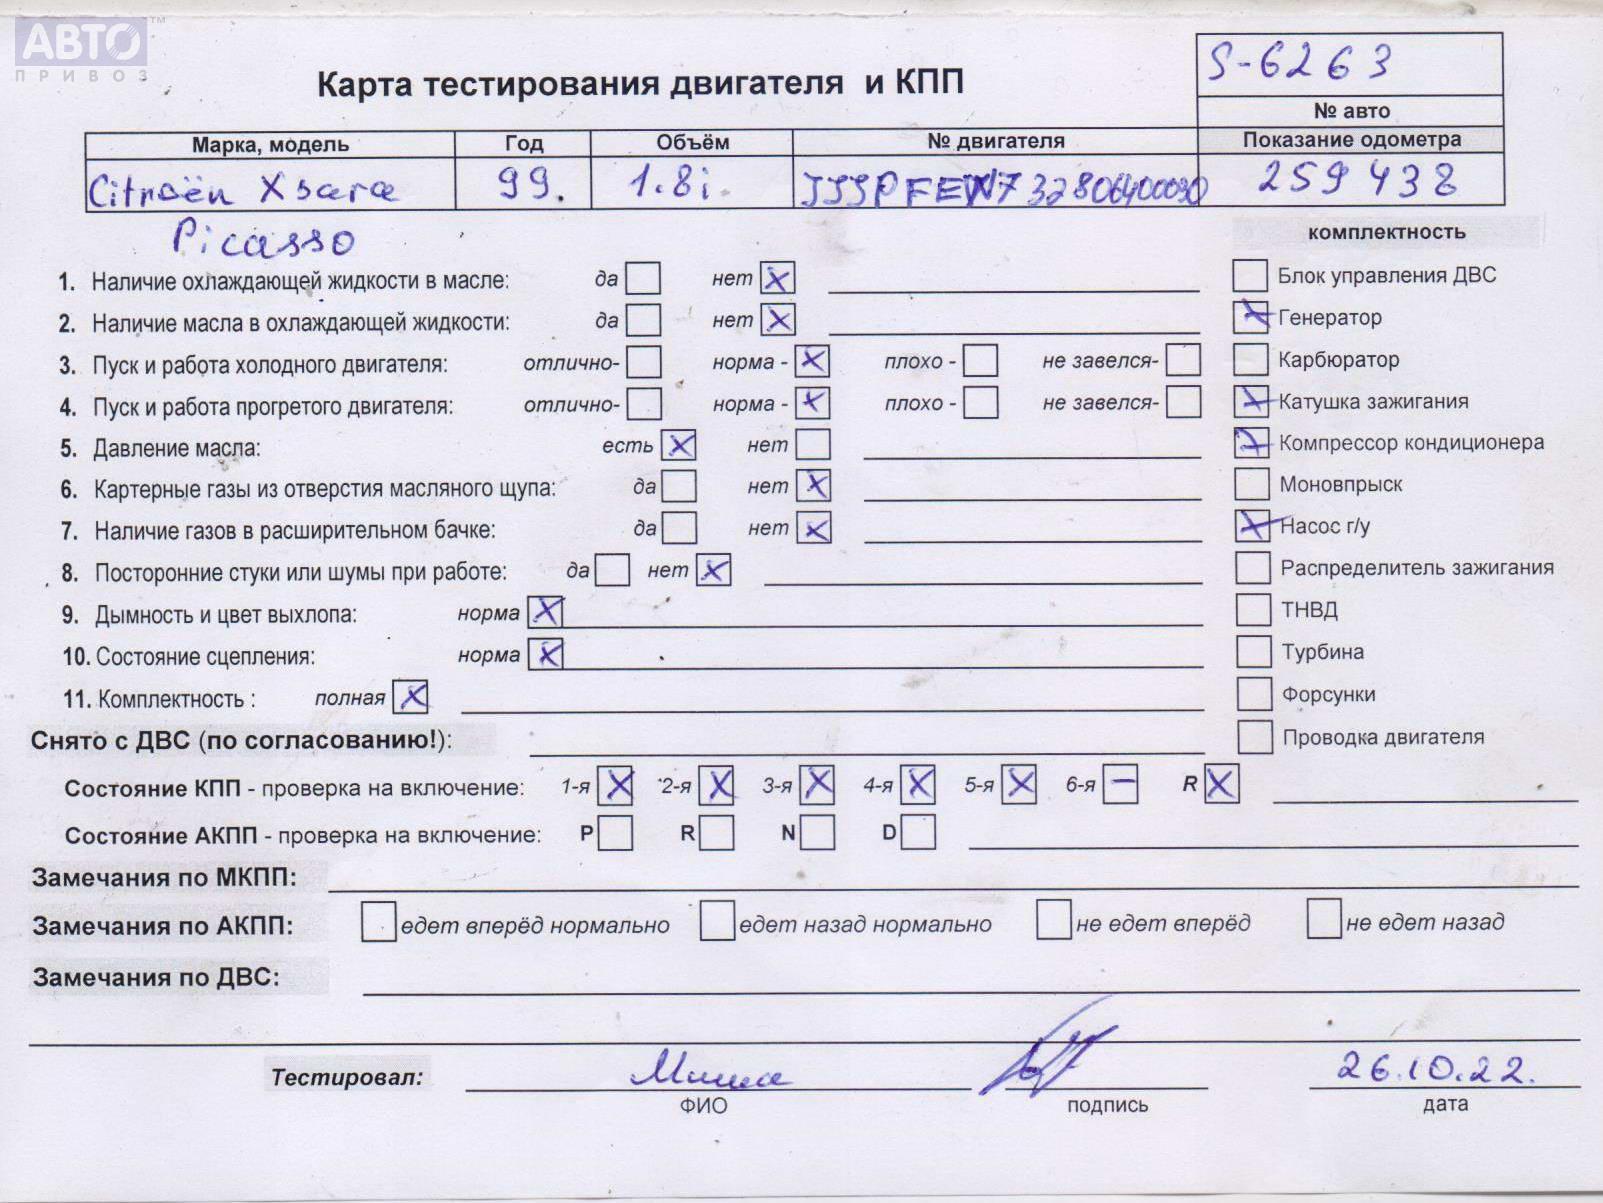 АВТО™
ПРИВОЗ
S-6263
Карта тестирования двигателя и КПП
№ авто
Марка, модель Год Объём № двигателя Показание одометра
Citroën Xsara 99. 1.8i. 259438
Picasso
комплектность
1. Наличие охлаждающей жидкости в масле: да нет X
Блок управления ДВС
2. Наличие масла в охлаждающей жидкости: да нет X
X Генератор
3. Пуск и работа холодного двигателя: отлично- норма - X плохо - не завелся-
Карбюратор
4. Пуск и работа прогретого двигателя: отлично- норма - X плохо - не завелся-
X Катушка зажигания
5. Давление масла: есть X нет
X Компрессор кондиционера
6. Картерные газы из отверстия масляного щупа: да нет X
Моновпрыск
7. Наличие газов в расширительном бачке: да нет X
X Насос г/у
8. Посторонние стуки или шумы при работе: да нет X
Распределитель зажигания
9. Дымность и цвет выхлопа: норма X
ТНВД
10. Состояние сцепления: норма X
Турбина
11. Комплектность : полная X
Форсунки
Снято с ДВС (по согласованию!):
Проводка двигателя
Состояние КПП - проверка на включение: 1-я X 2-я X 3-я X 4-я X 5-я X 6-я – R X
Состояние АКПП - проверка на включение: P R N D
Замечания по МКПП:
Замечания по АКПП: едет вперёд нормально едет назад нормально не едет вперёд не едет назад
Замечания по ДВС:
Тестировал: Миша 26.10.22.
ФИО подпись дата